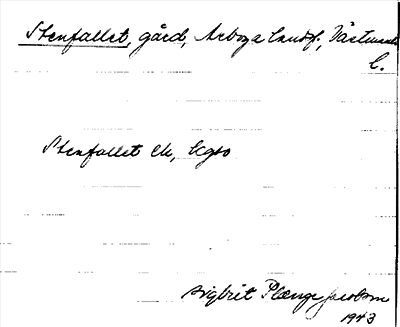 Stenfallet, gård, Arboga landsf., Västmanl.
L.
Stenfallet ek, Egso
Sigbrit Plænge Jacobson
1943